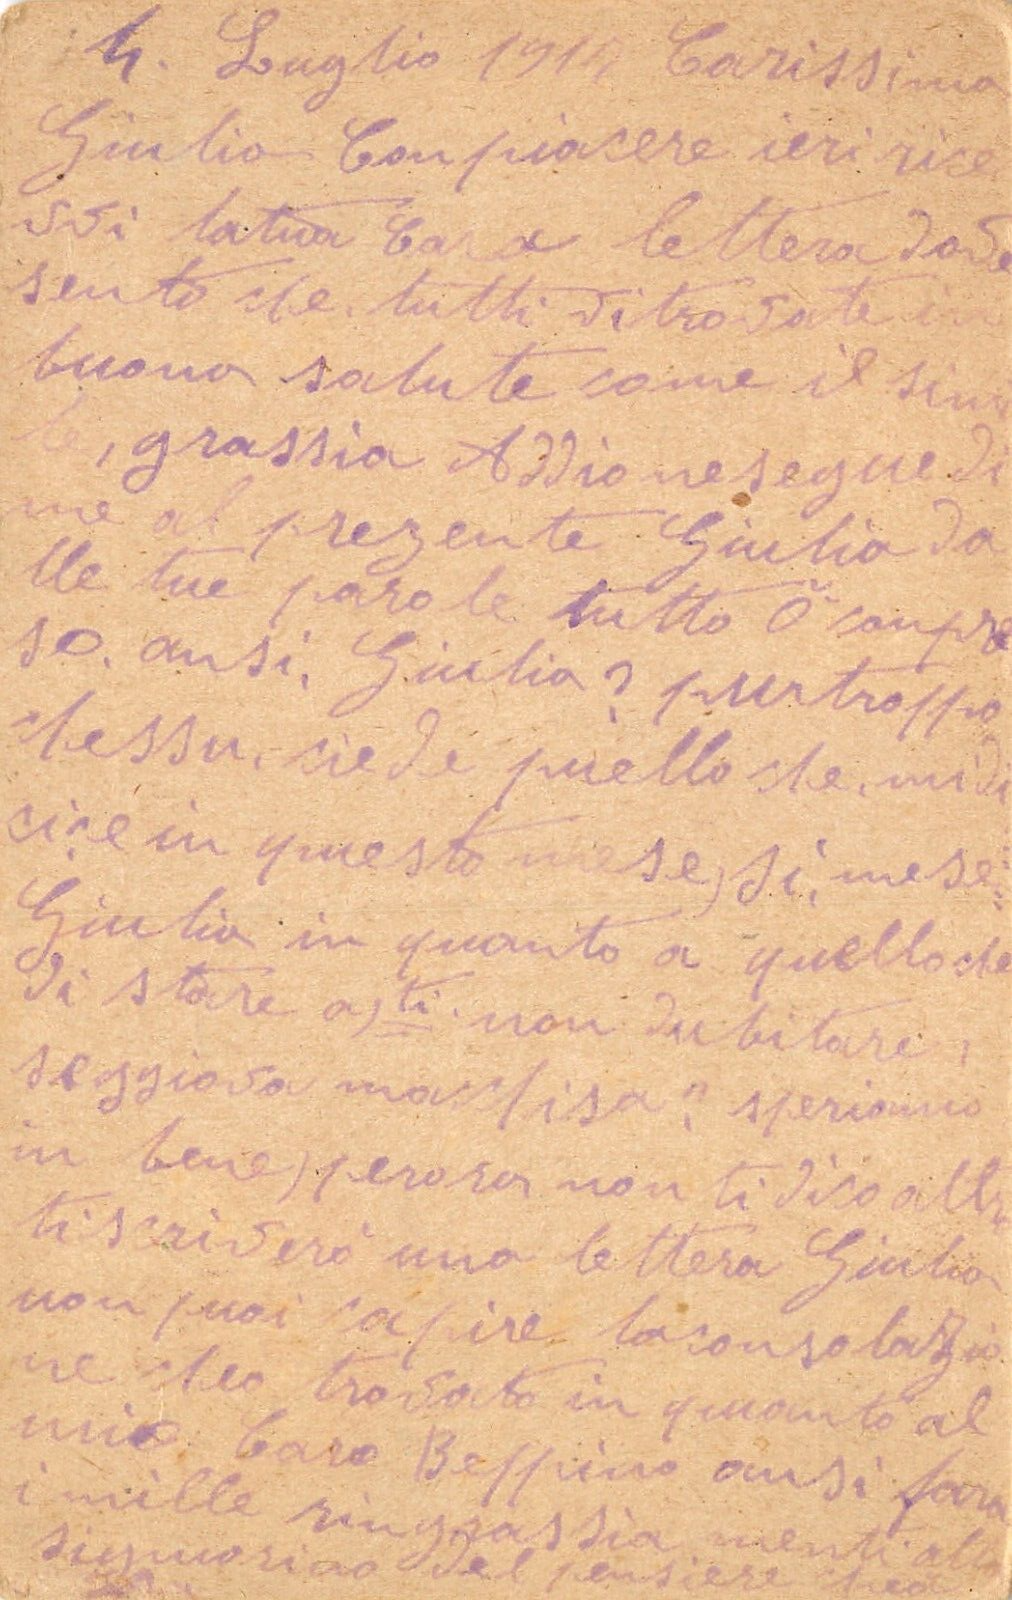 4. Luglio 191 Carissima
Giulia Con piacere ieri rice
vvi latua Cara lettera dove
sento che. tutti vitrovate in
buona salute come il simi
le, grassia Addio nesegue di
me al prezente Giulia da
lle tue parole tutto ò conpre
so. ansi, Giulia? purtroppo
chessu. siede quello che. midi
cise in questo mese, si, mese.
Giulia in quanto a quello che
di stare a, ti. non dubitare,
seggiova machisa? speriamo
in bene, perora non ti dico altro
tiscriverò una lettera Giulia
non puoi capire laconsolazio
ne cheo trovato in quanto al
mio Caro Beppino ansi fara
i mille ringrassia menti alla
signiorina del pensiere chea